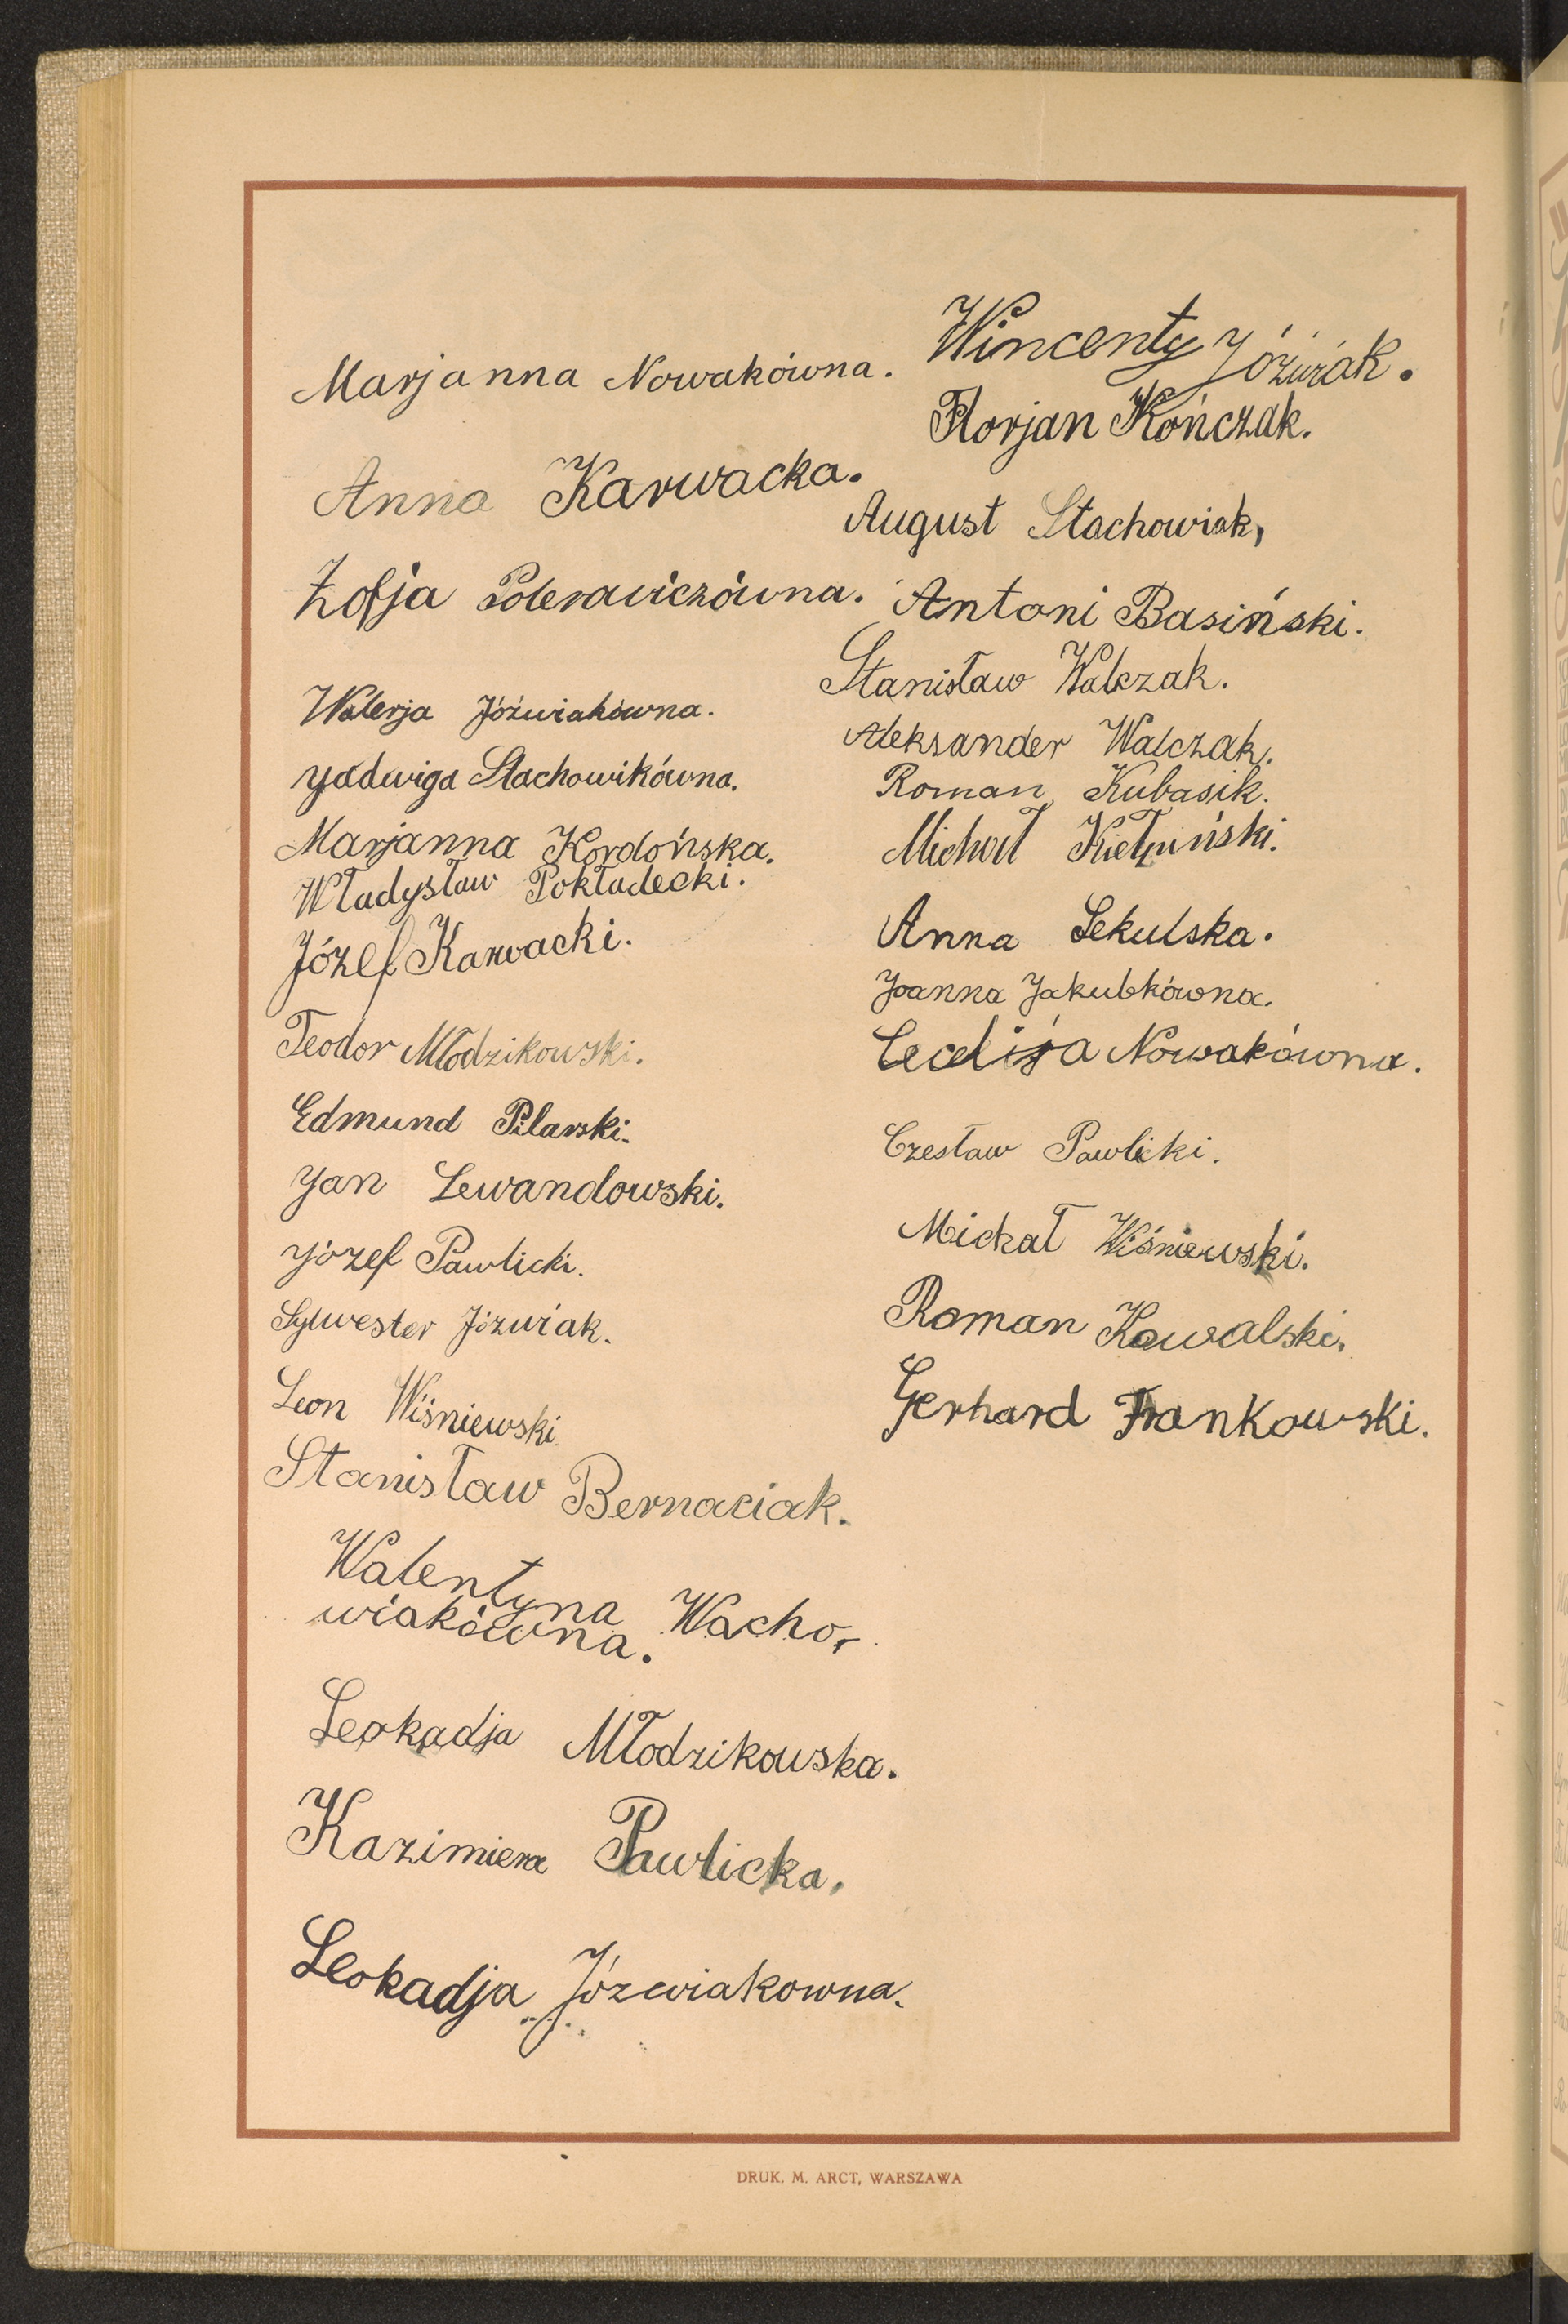 Marjanna Nowakówna.
Anna Karwacka.
Zofja
Walerja Jóźwiakówna.
Jadwiga Stachowikówna.
Marjanna Kordońska.
Władysław Pokładecki.
Józef Karwacki.
Teodor Młodzikowski.
Edmund Pilarski.
Jan Lewandowski.
Józef Pawlicki.
Sylwester Józwiak.
Leon Wiśniewski
Stanisław Bernaciak.
Walentyna Wacho-
wiakówna.
Leokadja Młodzikowska.
Kazimiera Pawlicka.
Leokadja Józwiakowna.
Wincenty Jóźwiak.
Florjan Kończak.
August Stachowiak,
Antoni Basiński.
Stanisław Walczak.
Aleksander Walczak.
Roman Kubasik.
Michał
Anna Sekulska.
Joanna Jakubkówna.
Cecelija Nowakówna.
Czesław Pawlicki.
Michał Wiśniewski.
Roman Kowalski.
Gerhard Frankowski.
DRUK. M. ARCT, WARSZAWA